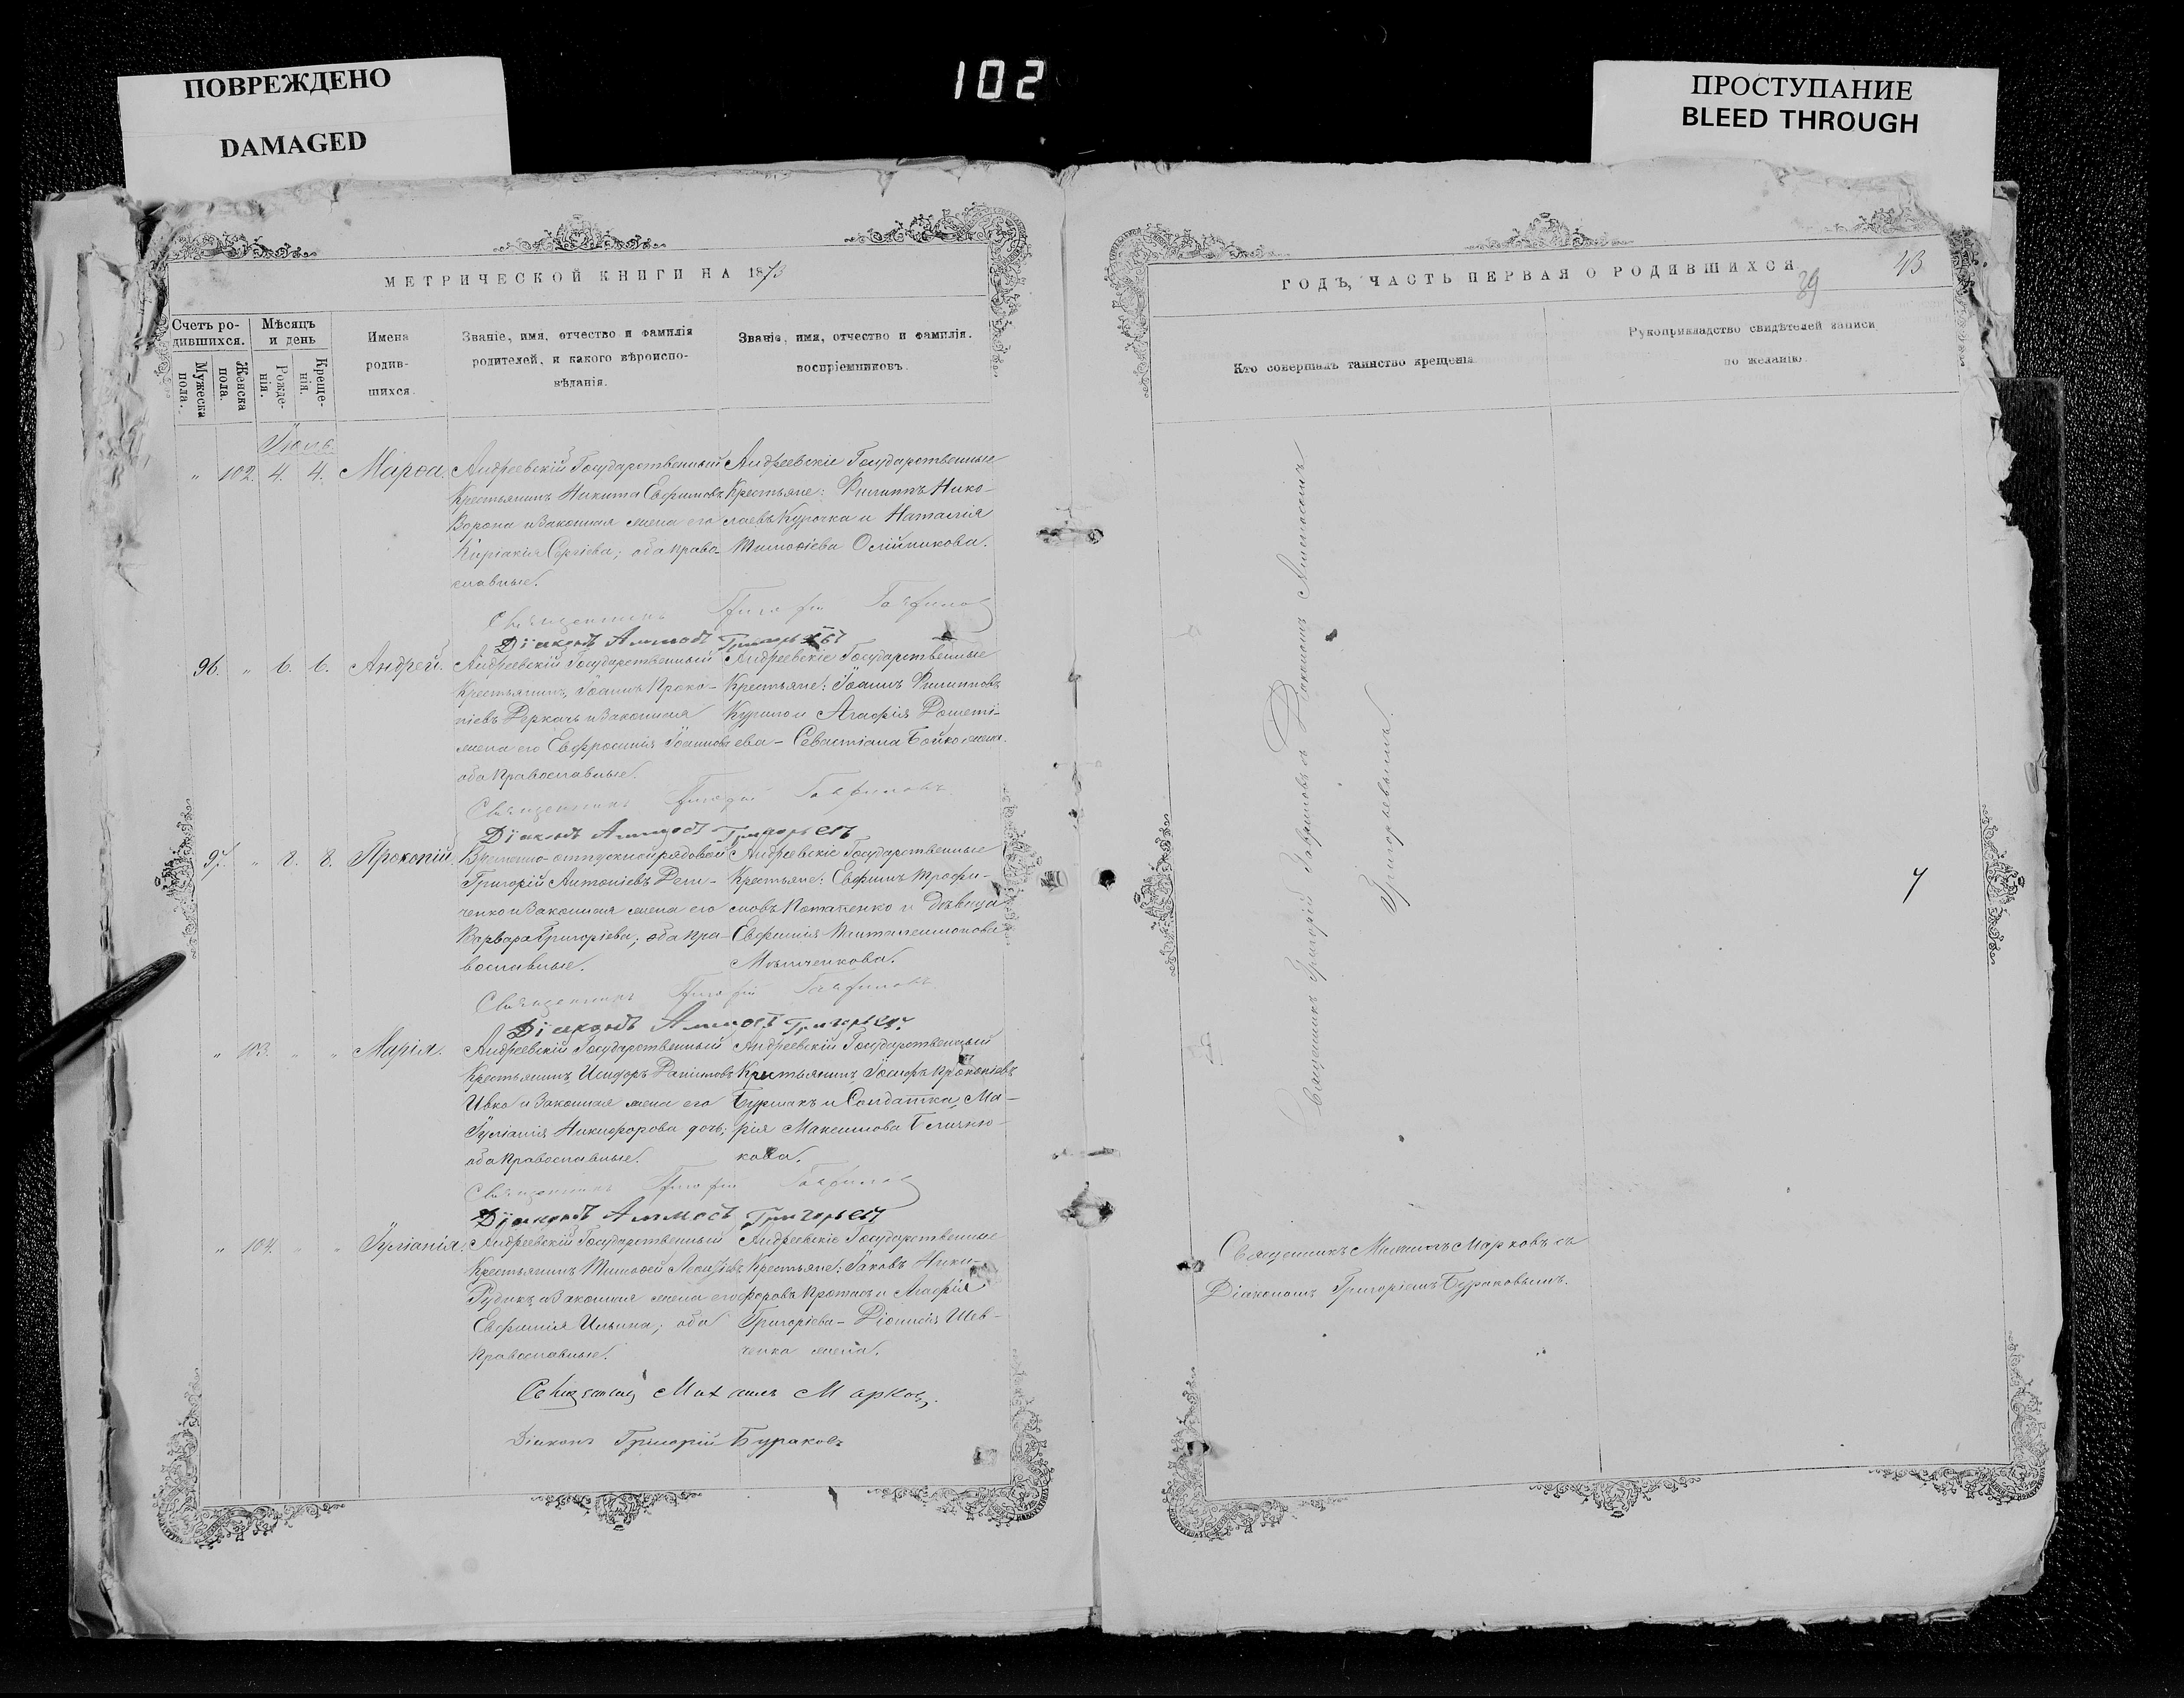 ПОВРЕЖДЕНО
DAMAGED
102
ПРОСТУПАНИЕ
BLEED THROUGH
МЕТРИЧЕСКОЙ КНИГИ НА 1873
Счетъ ро-
дившихся.
Мужеска
пола.
Женска
пола.
Мѣсяцъ
и день
Рожде-
нія.
Креще-
нія.
Имена
родив-
шихся.
Званіе, имя, отчество и фамилія
родителей, и какого вѣроиспо-
вѣданія.
Званіе, имя, отчество и фамилія.
воспріемниковъ.
Іюль
" 102. 4. 4. Марѳа.
Андреевскій Государственный
Крестьянинъ Никита Евфимовъ
Ворона и Законная жена его
Киріакія Сергіева; оба право-
славные.
Андреевскіе Государственные
Крестьяне: Филиппъ Нико-
лаевъ Курочка и Наталія
Тимоѳіева Олійникова.
Священникъ Григорій Гавриловъ
Діаконъ Григорьевъ
96. " 6. 6. Андрей.
Андреевскій Государственный
Крестьянинъ, Іоаннъ Проко-
піевъ Деркачъ и Законная
жена его Евфросинія Іоаннова
оба Православные.
Андреевскіе Государственные
Крестьяне: Іоаннъ Филипповъ
Курило и Агафія Дометі-
ева - Севастіана Бойко жена.
Священникъ Григорій Гавриловъ
Діаконъ Григорьевъ
97. " 8. 8. Прокопій.
Временно-отпускной рядовой
Григорій Антоніевъ
ченко и Законная жена его
Варвара Григоріева; оба Пра-
вославные.
Андреевскіе Государственные
Крестьяне: Евфимъ Трофи-
мовъ Потапенко и Дѣвица
Евфимія Пантелеимонова
Священникъ Григорій Гавриловъ
Діаконъ Григорьевъ
" 103. " " Марія.
Андреевскій Государственный
Крестьянинъ, Исидоръ
Ивко и Законная жена его
Іуліанія Никифорова дочь;
оба Православные.
Андреевскій Государственный
Крестьянинъ, Іосифъ Прокопіевъ
Бурлакъ и Солдатка, Ма-
рія Максимова
кова.
Священникъ Григорій Гавриловъ
Діаконъ Григорьевъ
" 104. " " Іуліанія.
Андреевскій Государственный
Крестьянинъ Тимоѳей
Рудикъ, и Законная жена его
Евфимія Ильина; оба
Православные.
Андреевскіе Государственные
Крестьяне: Іаковъ Ники-
форовъ и Агафія
Григоріева - Діонисія Шев-
ченка жена.
Священникъ Михаилъ Марковъ.
Діаконъ Григорій Бураковъ
ГОДЪ, ЧАСТЬ ПЕРВАЯ О РОДИВШИХСЯ
39
43
Кто совершалъ таинство крещенія
Рукоприкладство свидѣтелей записи
по желанію.
Священникъ Григорій Гавриловъ съ Діакономъ
Григорьевымъ.
Священникъ Михаилъ Марковъ съ
Діакономъ Григоріемъ Бураковымъ.